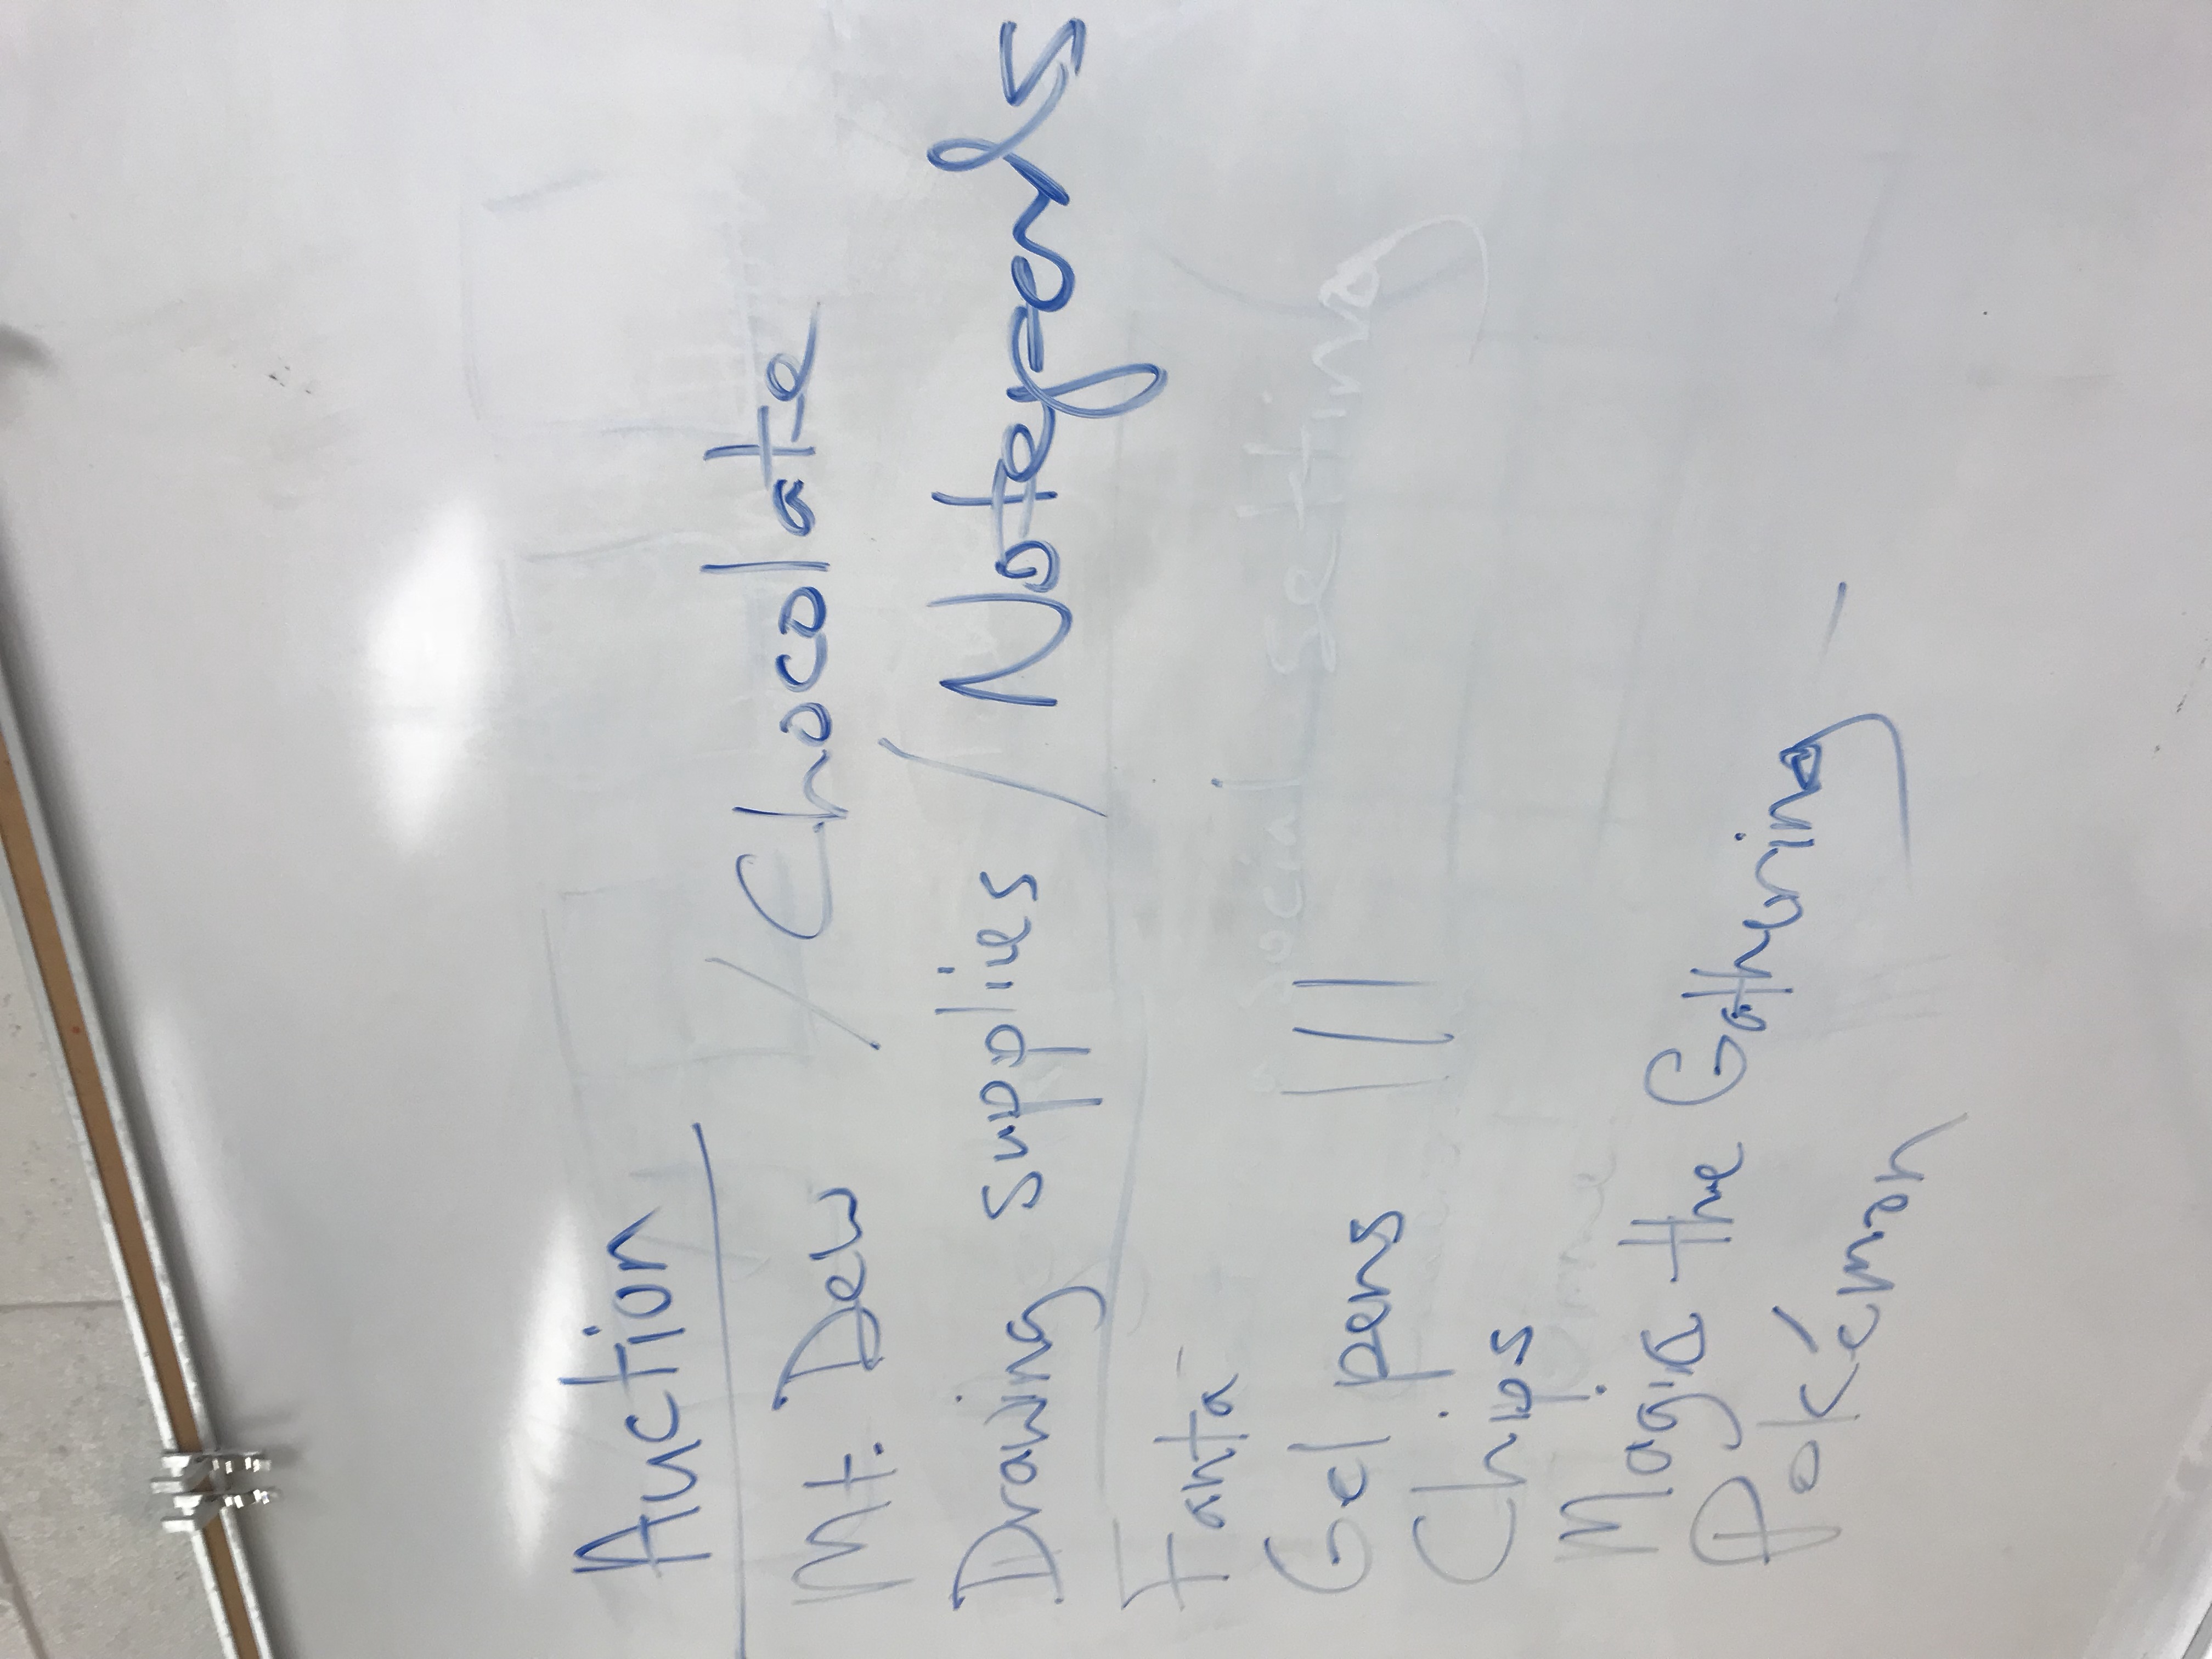 Auction
Mt. Dew / Chocolate
Drawing supplies / Notepads
Fanta
Gel pens |||
Chips
Magic the Gathering -
Pokémen
social setting